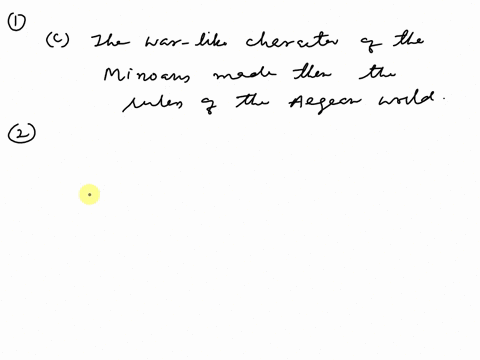 ①
(c) The war-like character of the
Minoans made then the
rules of the Aegean world.
②